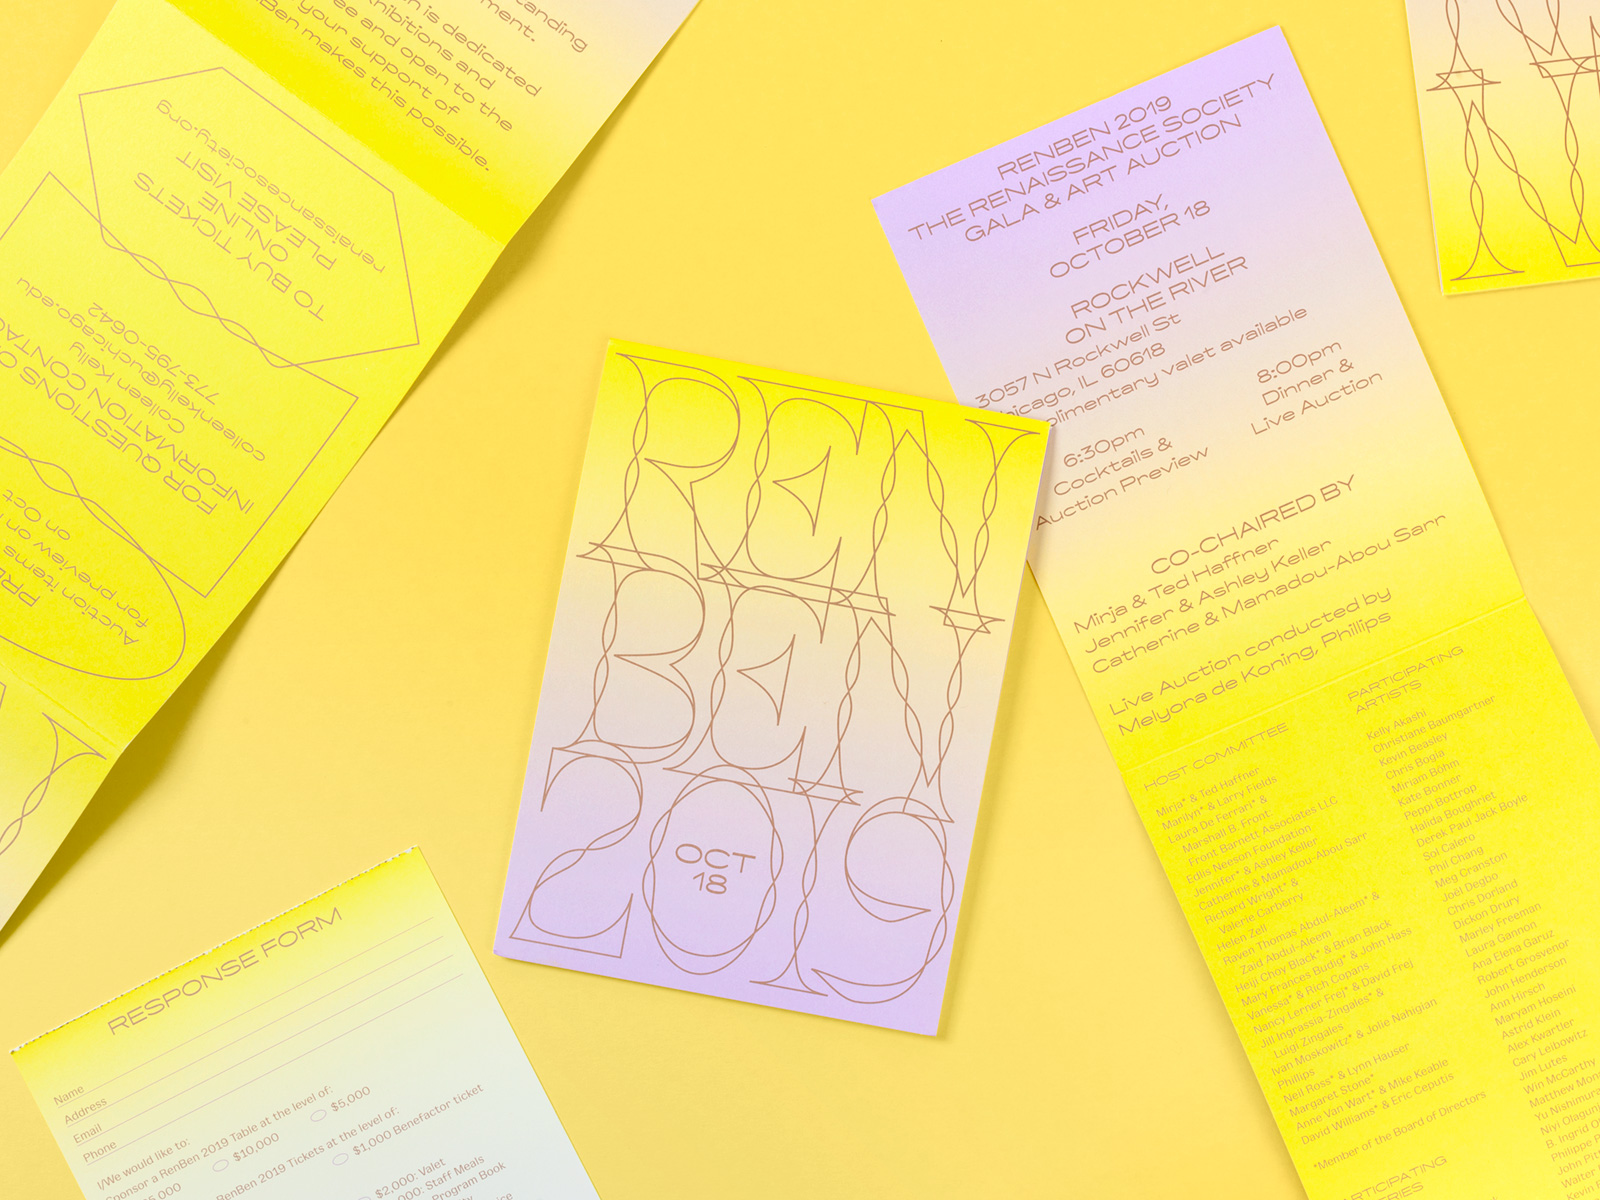 tanding
ment.
n is dedicated
hibitions and
ee and open to the
your support of
Ben makes this possible.
TO BUY TICKETS
ONLINE
PLEASE VISIT
renaissancesociety.org
FOR QUESTIONS O
INFORMATION CONTAC
Colleen Kelly
colleenkelly@uchicago.edu
773-795-0642
PRE
Auction items
for preview on
on Oct
REN
BEN
2019
OCT
18
RENBEN 2019
THE RENAISSANCE SOCIETY
GALA & ART AUCTION
FRIDAY,
OCTOBER 18
ROCKWELL
ON THE RIVER
3057 N Rockwell St
hicago, IL 60618
plimentary valet available
6:30pm
Cocktails &
Auction Preview
8:00pm
Dinner &
Live Auction
CO-CHAIRED BY
Mirja & Ted Haffner
Jennifer & Ashley Keller
Catherine & Mamadou-Abou Sarr
Live Auction conducted by
Melyora de Koning, Phillips
HOST COMMITTEE
Mirja* & Ted Haffner
Marilyn* & Larry Fields
Laura De Ferrari* &
Marshall B. Front
Front Barnett Associates LLC
Edlis Neeson Foundation
Jennifer* & Ashley Keller
Catherine & Mamadou-Abou Sarr
Richard Wright* &
Valerie Carberry
Helen Zell
Raven Thomas Abdul-Aleem* &
Zaid Abdul-Aleem
Heiji Choy Black* & Brian Black
Mary Frances Budig* & John Hass
Vanessa* & Rich Copans
Nancy Lerner Frej* & David Frej
Jill Ingrassia-Zingales* &
Luigi Zingales
Ivan Moskowitz* & Jolie Nahigian
Phillips
Neil Ross* & Lynn Hauser
Margaret Stone*
Anne Van Wart* & Mike Keable
David Williams* & Eric Ceputis
*Member of the Board of Directors
PARTICIPATING
ARTISTS
Kelly Akashi
Christiane Baumgartner
Kevin Beasley
Chris Bogia
Mirjam Böhm
Kate Bonner
Peppi Bottrop
Halida Boughriet
Derek Paul Jack Boyle
Sol Calero
Phil Chang
Meg Cranston
Joël Degbo
Chris Dorland
Dickon Drury
Marley Freeman
Laura Gannon
Ana Elena Garuz
Robert Grosvenor
John Henderson
Ann Hirsch
Maryam Hoseini
Astrid Klein
Alex Kwartler
Cary Leibowitz
Jim Lutes
Win McCarthy
Matthew Mon
Yu Nishimur
Niyi Olagun
B. Ingrid O
Philippe P
John Pit
Walter
Kevin
ARTICIPATING
ERIES
RESPONSE FORM
Name
Address
Email
Phone
I/We would like to:
Sponsor a RenBen 2019 Table at the level of:
5,000
$10,000
$5,000
RenBen 2019 Tickets at the level of:
$1,000 Benefactor ticket
$2,000: Valet
000: Staff Meals
Program Book